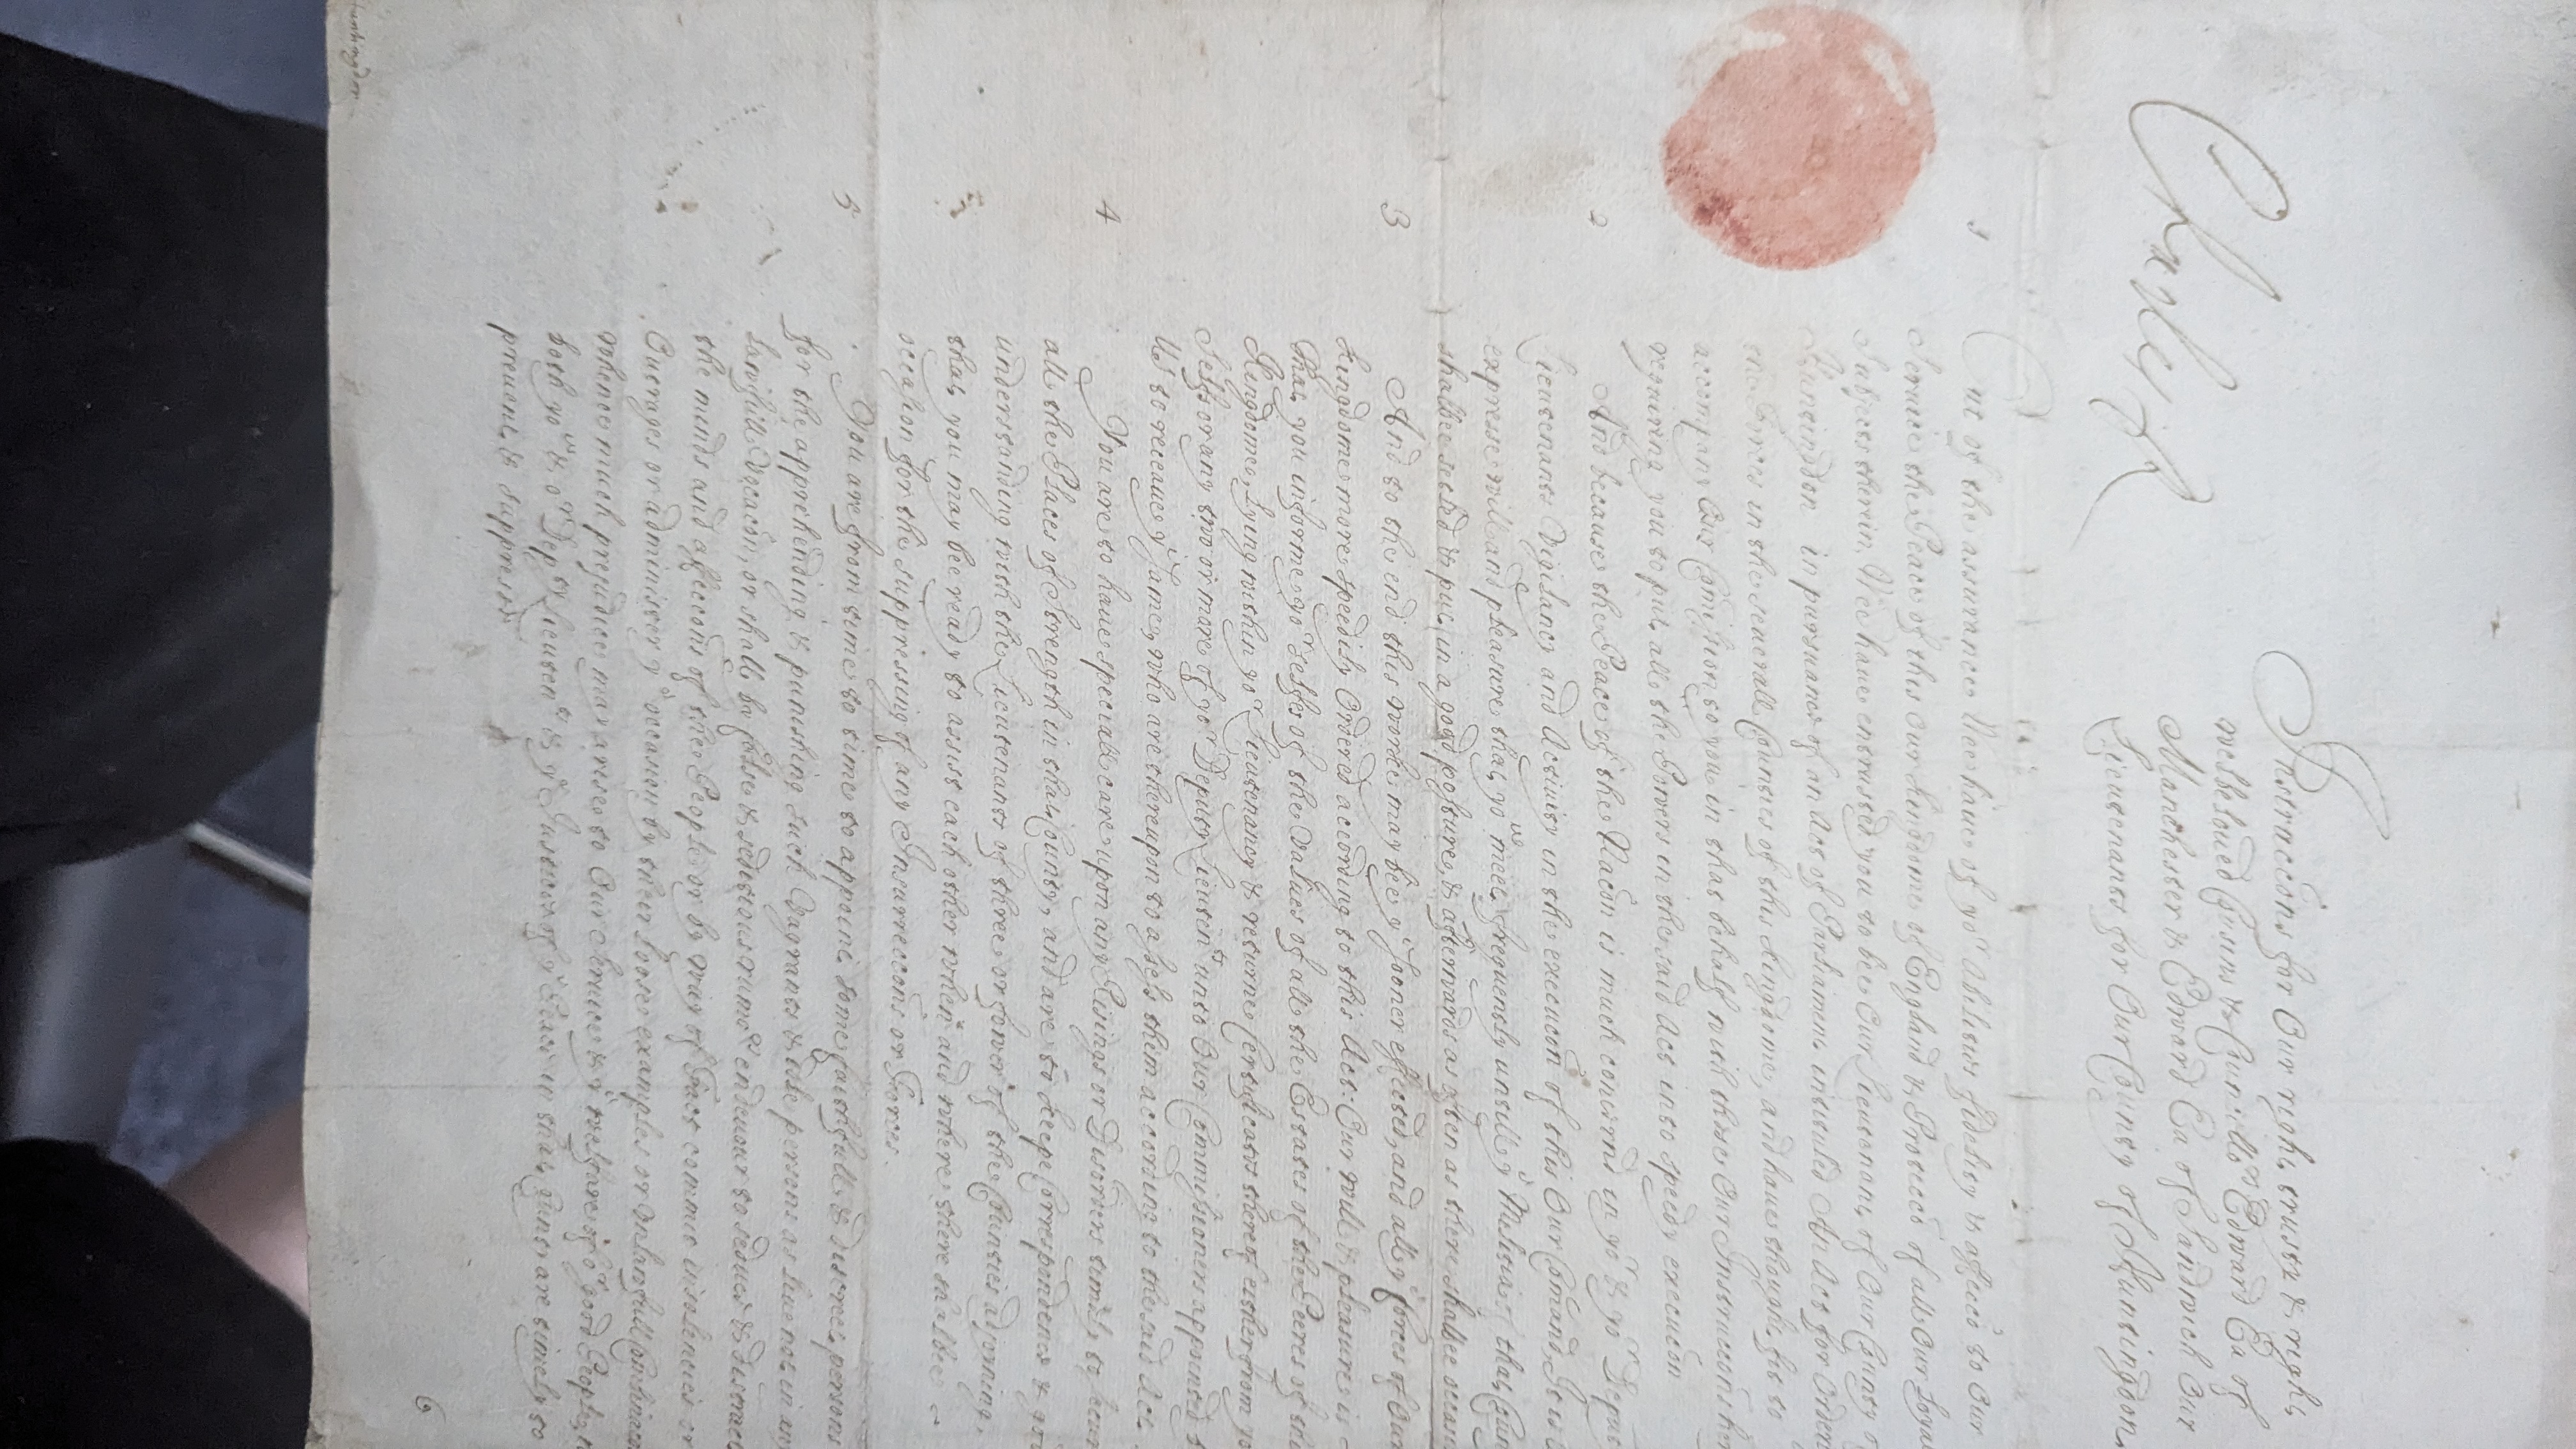 Charles R
Instruccons for Our right trusty & right
welbeloved Cousins & Councello:rs Edward Ea: of
Manchester & Edward Ea: of Sandwich Our
Lieutenants for Our County of Huntingdon
1 Out of the assurance Wee have of yo:r Abilitys fidelity & affeccõ to Our
Service the Peace of this Our Kingdome of England & Proteccõ of all Our Loyall
Subjects therein, Wee have entrusted you to bee Our Lieutenants of Our County of
Huntingdon in pursuance of an Act of Parliament intituled An Act for Ordering
the Forces in the severall Counties of this Kingdome, and have thought fitt to
accompany Our Comission to you in that behalf with these Our Instruccons
requiring you to put all the Powers in the said Act into speedy execucõn
2 And because the Peace of the Nacõn is much concerned in yo:r & yo:r Deputy
Lieutenants Vigilancy and Activity in the execucõn of this Our Comand, It is
expresse will and pleasure that yo:u meet frequently untill y:e Militia of that County
shalbee setled & put in a good posture, & afterwards as often as there shalbee occasion
3 And to the end this worke may bee y:e sooner effected, and all y:e forces of Our
Kingdome more speedily Ordered according to this Act: Our will & pleasure is
That you informe yo:r selfes of the Values of all the Estates of the Peeres of this
Kingdome, Lying within yo:r Lieutenancy & returne Certificates thereof either from yo:r
Selfs or any two or more of yo:r Deputy Lieuten:ts unto Our Commissioners appointed
Us to receave y:e same, who are thereupon to assess them according to the said Act
4 You are to have speciall care upon any Risings or Disorders timely to secure
all the Places of Strength in that County, and are to keepe Correspondence &
understanding with the Lieutenants of three or fower of the Counties adjoyning,
that you may bee ready to assist each other when and where there shalbee
occasion for the suppressing of any Insurreccons or Forces.
5 You are from time to time to appoint some faithfull & discreet persons
for the apprehending & punishing such Vagrants & Idle persons as live not in any
Lawfull Vocacõn, or shall by false & seditious rumo:rs endeavour to seduce & distract
the minds and affeccons of the People or by way of Fact commit insolencies or
Outrages or administer y:e occasion by their loose examples or unlawfull Combinacons
whence much prejudice may arise to Our Service & y:e welfare of o:r good People,
both yo:u & o:r Dep:ty Lieuten:ts & y:e Justices of y:e Peace in that County are timely to
prevent & suppresse
6
Huntingdon